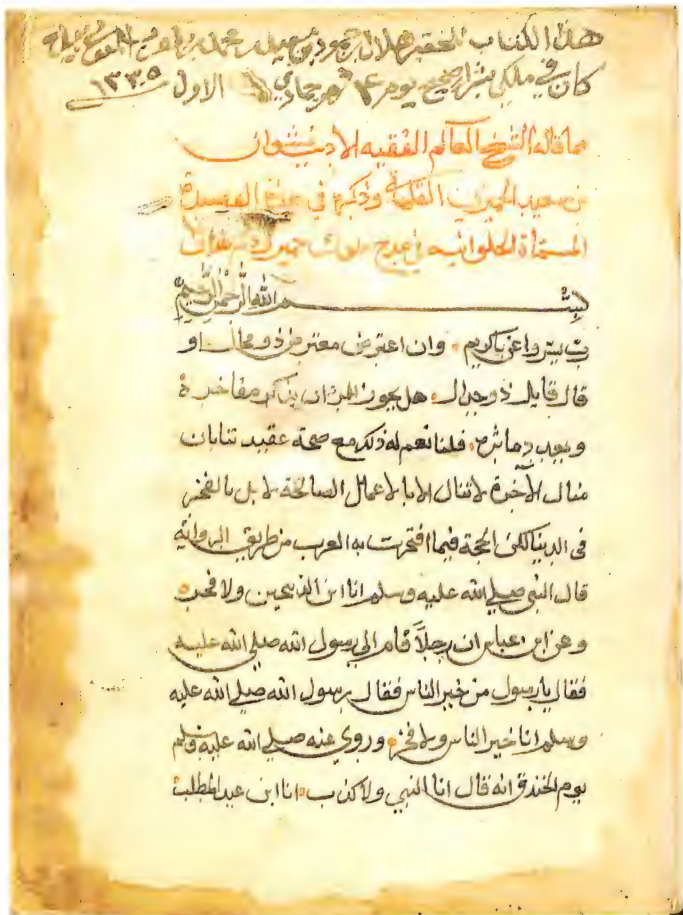 هذا الكتاب الحقير هلال بن حمود بن سيف بن محمد بن
كان في ملكي بشراء صحيح يوم ٣ شهر جمادي الاول ١٣٣٥
ما قاله الشيخ العالم الفقيه الاديب نشوان
بن سعيد الحميري وذكره في هذه القصيدة
المسماة الحلوانيه في مدح ملوك حمير
بسم الله الرحمن الرحيم
رب يسر واعن ياكريم وان اعترض معترض ذو محال او
قال قايل ذو جدال هل يجوز المرء ان يذكر مفاخره
ويعدد مآثره فلنا نعم له ذلك مع صحة عقيد تنا بان
منال الاخرة لاتنال الا بالاعمال الصالحة لا بل بالفخر
في الدنيا لكن الحجة فيما افتخرت به العرب من طريق الروايه
قال النبي صلي الله عليه وسلم انا ابن الذبيحين ولا فخر
وعن ابن عباس ان رجلاً قام الي رسول الله صلي الله عليه
فقال يارسول من خير الناس فقال رسول الله صلي الله عليه
وسلم انا خير الناس ولا فخر وروي عنه صلي الله عليه وسلم
يوم الخندق انه قال انا النبي ولا كذب انا ابن عبد المطلب